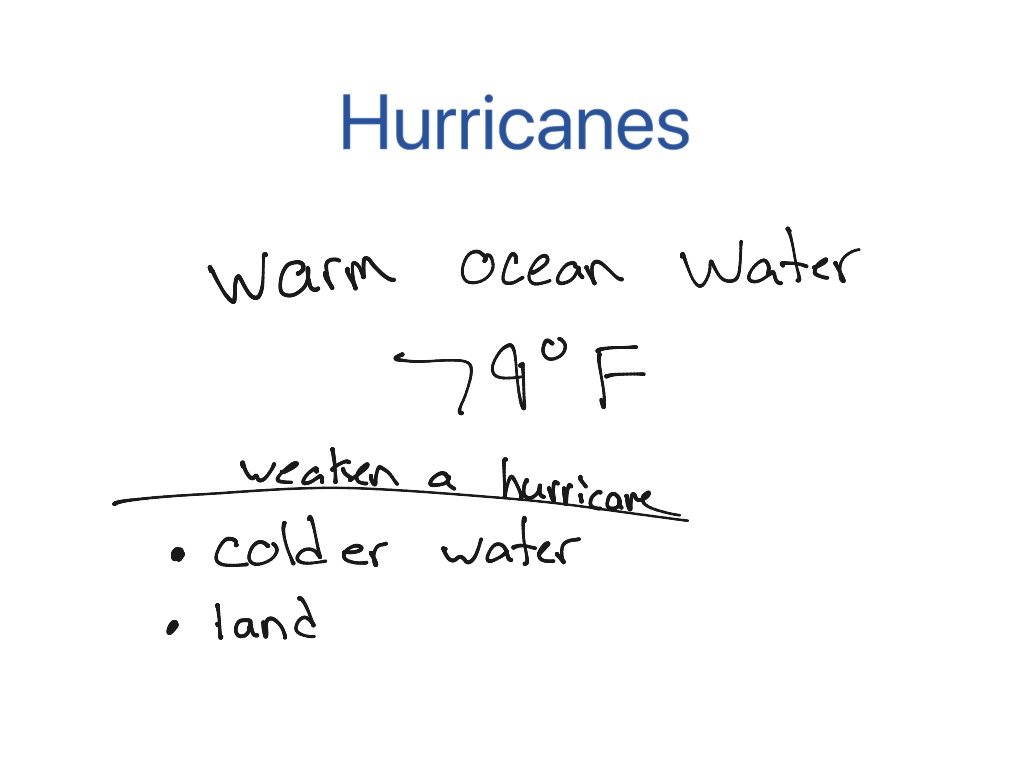 Hurricanes
Warm ocean Water
79° F
weaken a hurricane
• colder water
• land